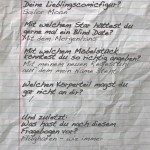 Deine Lieblingscomicfigur?
Sailor Moon
Mit welchem Star hättest du
gerne mal ein Blind Date?
Mit dem Morgenstern
Mit welchem Möbelstück
könntest du so richtig angeben?
Mit meinem neuen Regiestuhl
auf dem mein Name steht
Welchen Körperteil magst du
gar nicht an dir?
Und zuletzt:
Was hast du nach diesem
Fragebogen vor?
wie immer